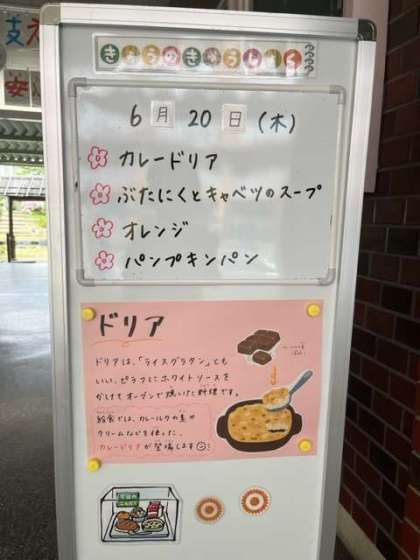 支え
安
きょうのきゅうしょく
6月20日(木)
カレードリア
ぶたにくとキャベツのスープ
オレンジ
パンプキンパン
ドリア
ドリアは、「ライスグラタン」とも
いい、ピラフにホワイトソースを
かけてオーブンで焼いた料理です。
給食では、カレールウの素や
クリームなどを使った、
カレードリアが登場します